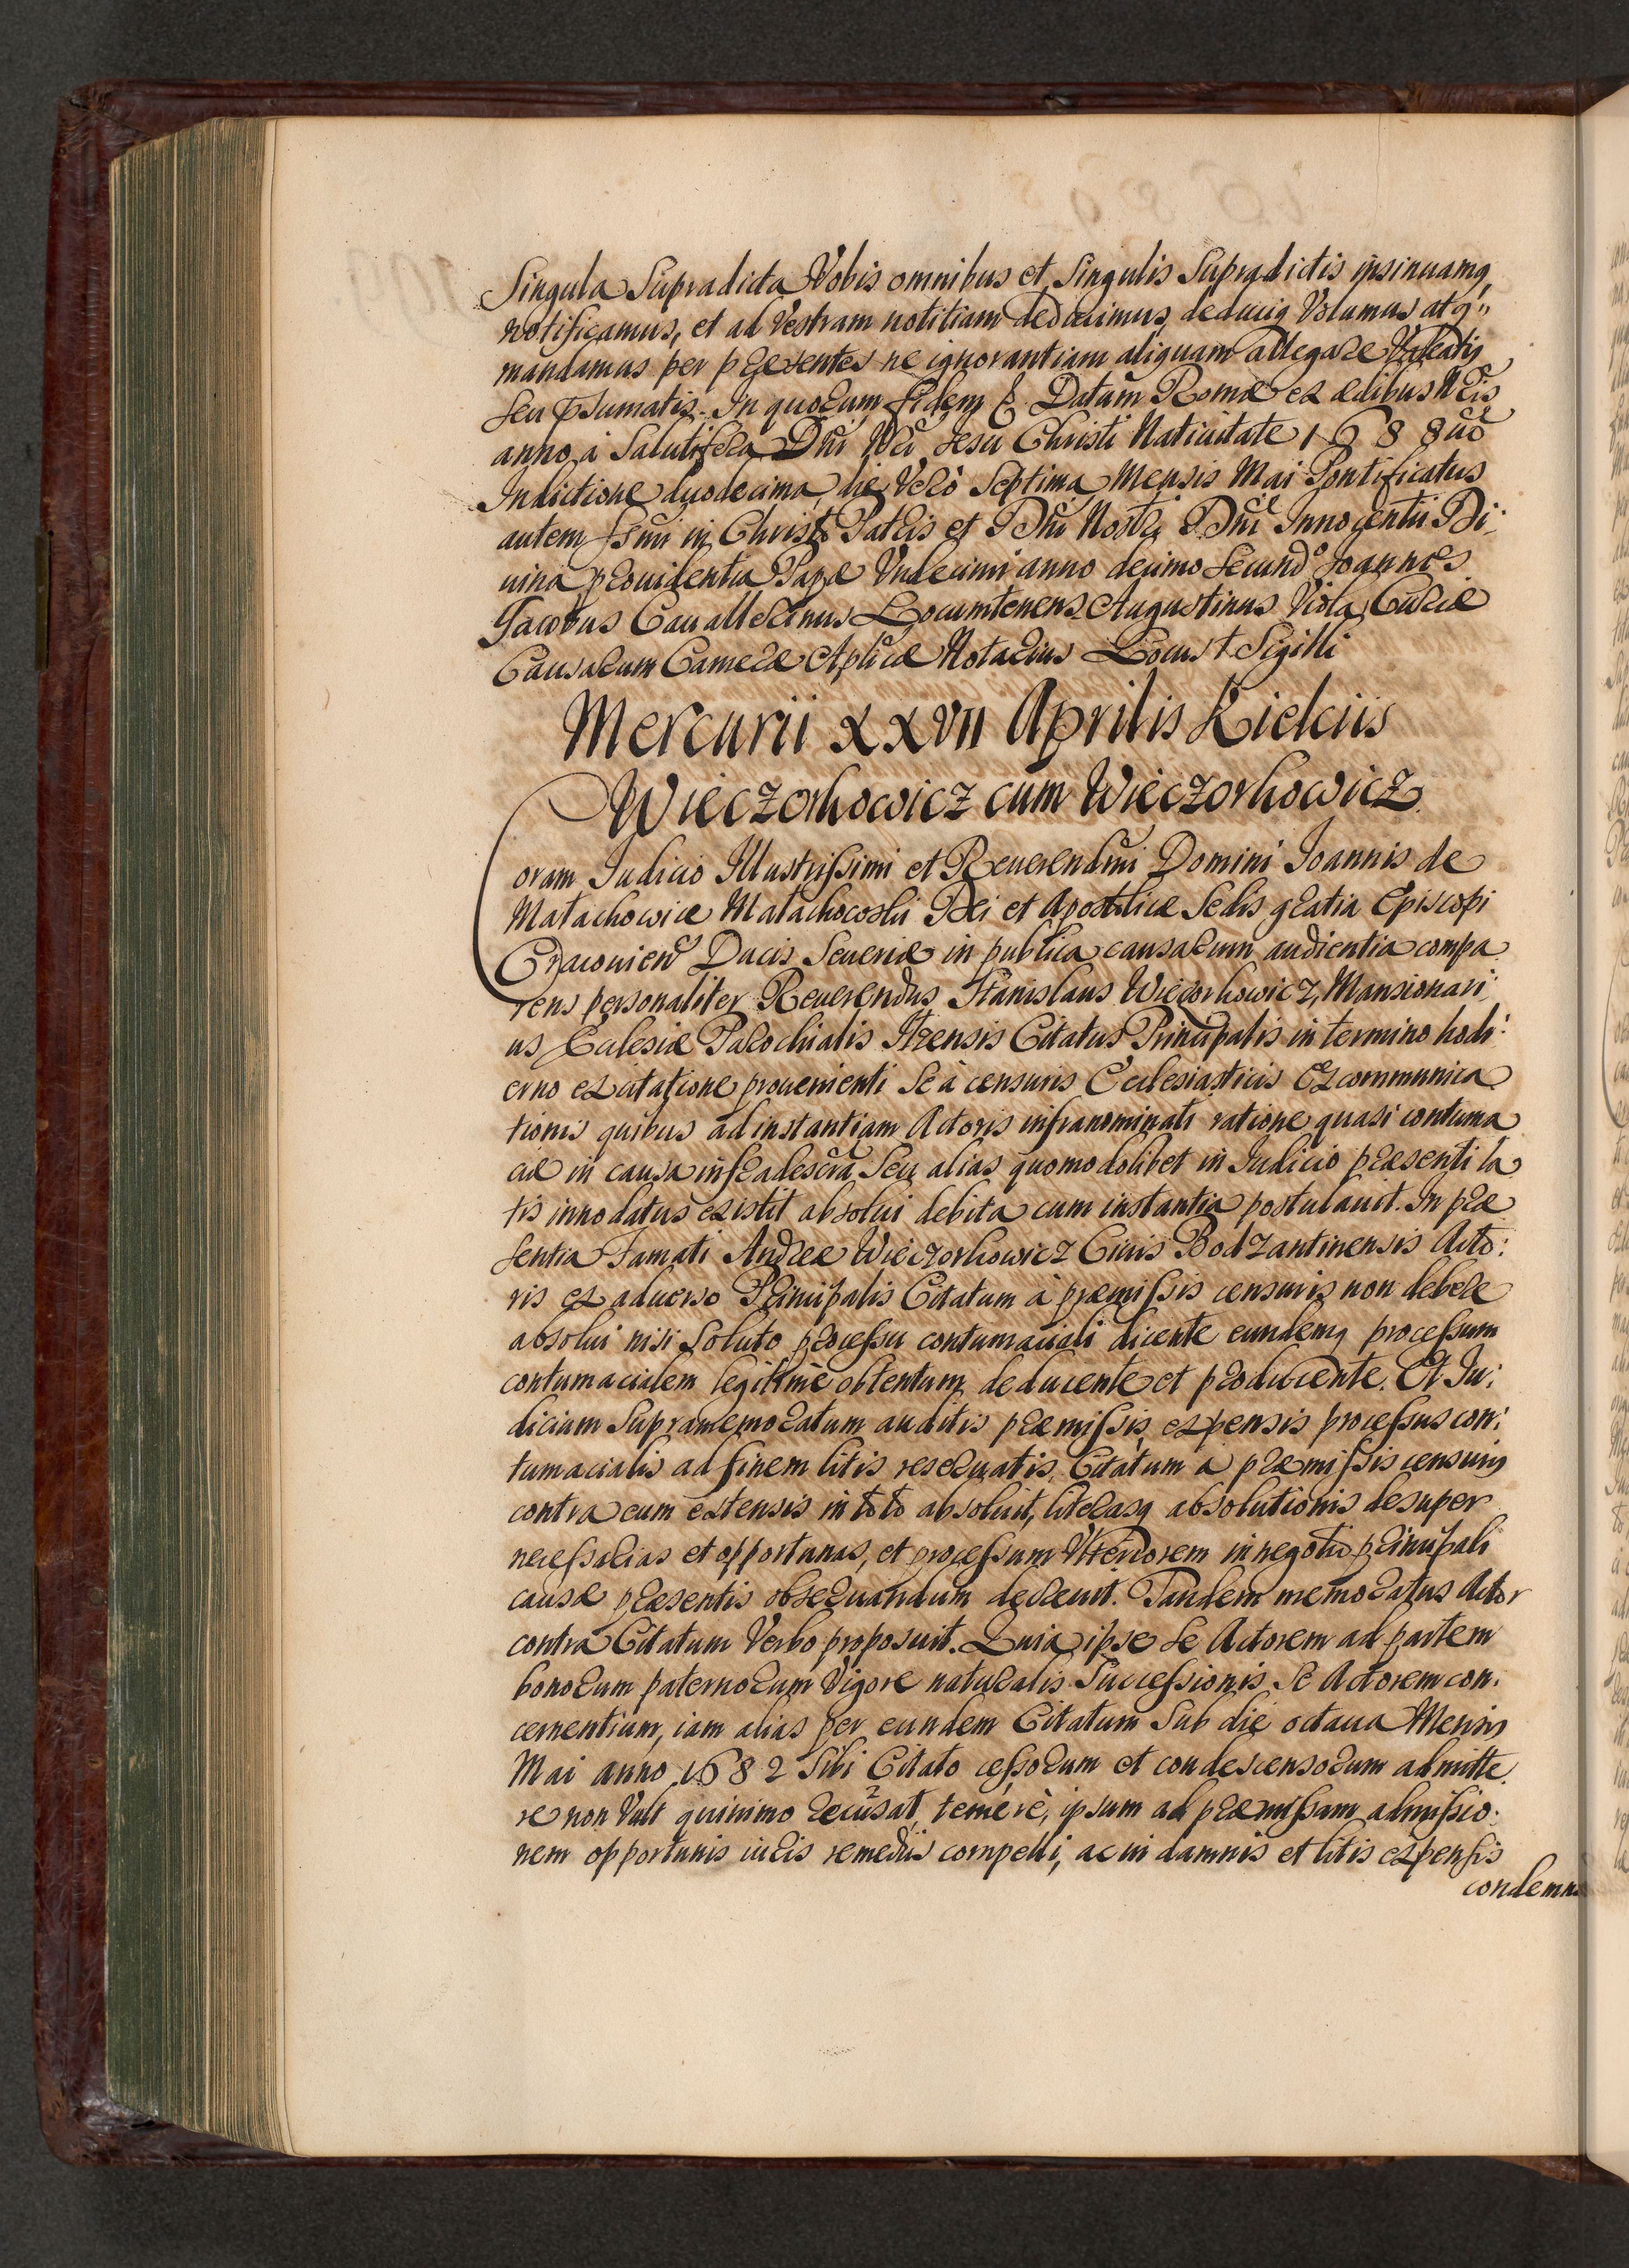 Singula Supradicta Vobis omnibus et Singulis Supradictis insinuamq,
notificamus, et ad Vestram notitiam deducimus, deduciq Volumus atq"
mandamus per præsentes ne ignorantiam aliquam allegare Valeatis
seu psumatis. In quorum fidem &. Datum Romæ ex ædibus Nris
anno a Salutifera Dni Nri Jesu Christi Natiuitate 1688
Indictione duodecima, die Vero Septima Mensis Mai Pontificatus
autem Ssmi in Christo Patris et Dni Nostri Dni Innocentii Di:
uina prouidentia Papæ Vndecimi anno decimo Secundo Joannes
Jacobus Cauallerinus Locumtenens Augustinus Viola Curiæ
Causarum Cameræ Aplicæ Notarius Locus + Sigilli
Mercurii XXVII Aprilis Kielciis
Wieczorkowicz cum Wieczorkowicz
Coram Iudicio Illustrissimi et Reuerendmi Domini Ioannis de
Małachowice Małachowski Dei et Apostolicæ Sedis gratia Episcopi
Cracouien Ducis Seueriæ in publica causarum audientia compa
rens personaliter Reuerendus Stanislaus Wieczorkowicz, Mansionari:
us Ecclesiæ Parochialis Itzensis Citatus Principalis in termino hodi:
erno ex citatione prouenienti Se a censuris Ecclesiasticis Excommunica
tionis quibus ad instantiam Actoris infranominati ratione quasi contuma
ciæ in causa infradescra Seu alias quomodolibet in Iudicio præsenti la
tis innodatus existit absolui debita cum instantia postulauit. In præ
sentia Famati Andreæ Wieczorkowicz Ciuis Bodzantinensis Acto:
ris ex aduerso Principalis Citatum a præmissis censuris non debere
absolui nisi Soluto processu contumaciali dicente eundemq processum
contumacialem legittime obtentum deducente et producente. Et Iu:
dicium Supramemoratum auditis præmissis, expensis processus con:
tumacialis ad finem litis reseruatis, Citatum a præmissis censuris
contra eum extensis in toto absoluit, literasq absolutionis desuper
necessarias et opportunas, et processum Vlteriorem in negotio principali
causæ præsentis obseruandum decreuit. Tandem memoratus Actor
contra Citatum Verbo proposuit. Quia ipse Se Actorem ad partem
bonorum paternorum Vigore naturalis Successionis Se Actorem con:
cernentium, iam alias per eundem Citatum Sub die octaua Mensis
Mai anno 1682 Sibi Citato cessorum et condescensorum admitte
re non Vult quinimo recusat temere, ipsum ad præmissam admissio:
nem opportunis iuris remediis compelli, ac in damnis et litis expensis
condemna